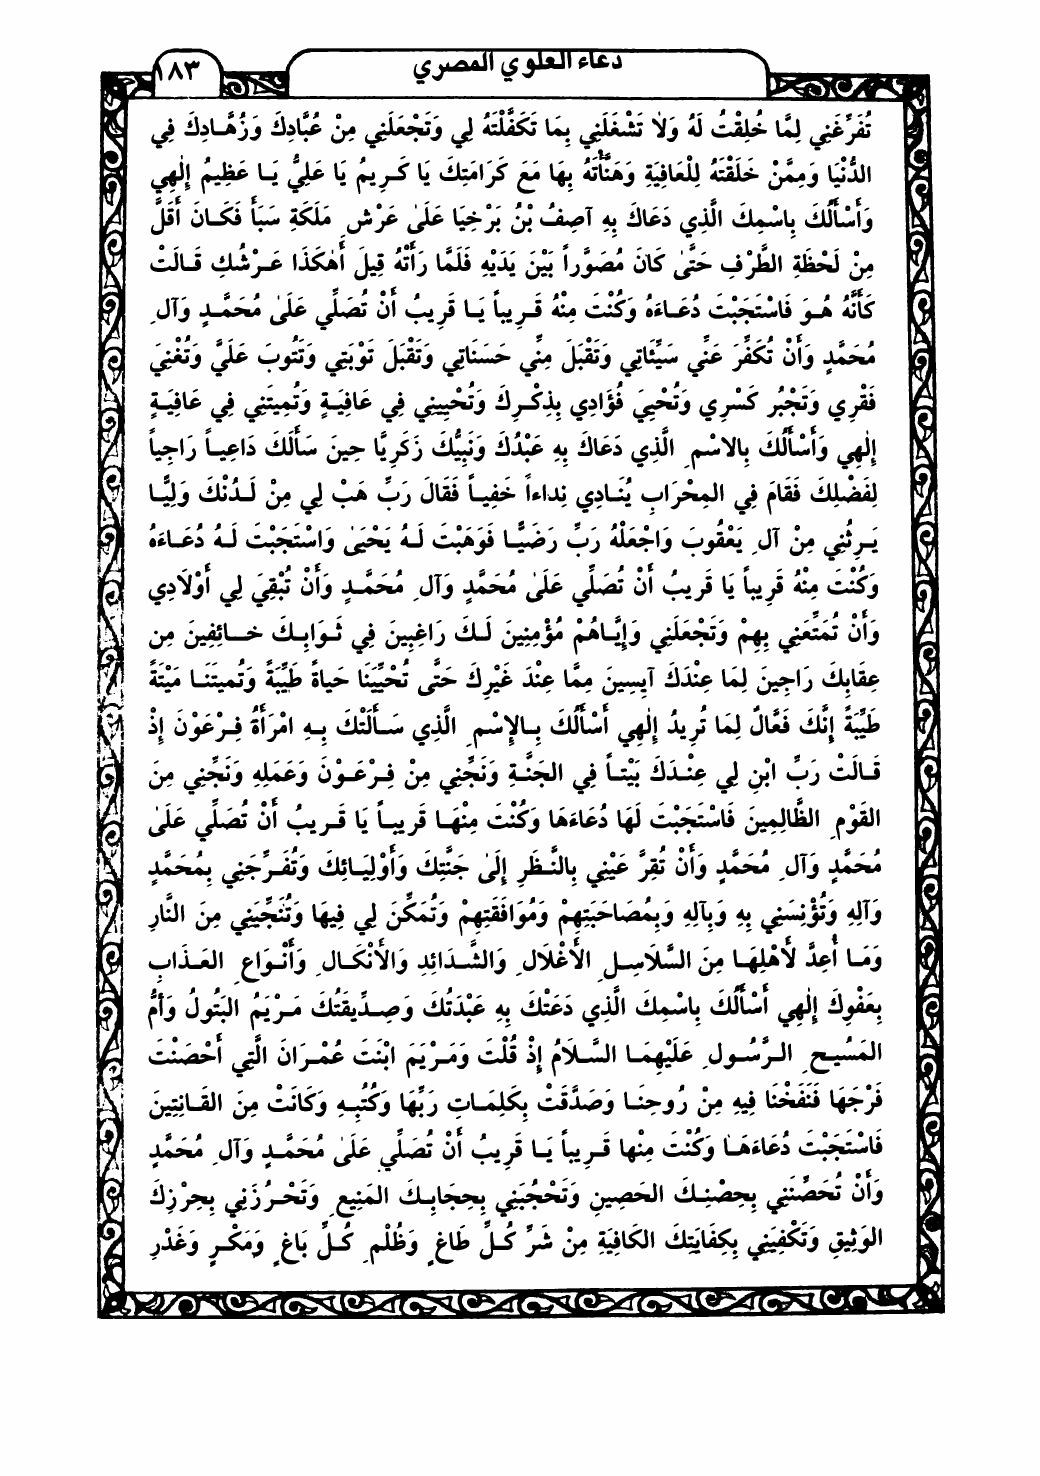 دعاء العلوي المصري
١٨٣
تُفَرِّغَنِي لِمَّا خُلِقْتُ لَهُ وَلاٰ تَشْغَلَنِي بِمَا تَكَفَّلْتَهُ لِي وَتَجْعَلَنِي مِنْ عُبَّادِكَ وَزُهَّادِكَ فِي
الدُّنْيَا وَمِمَّنْ خَلَقْتَهُ لِلْعَافِيَةِ وَهَنَّأْتَهُ بِهَا مَعَ كَرَامَتِكَ يَا كَرِيمُ يَا عَلِيُّ يَا عَظِيمُ إِلٰهِي
وَأَسْأَلُكَ بِاسْمِكَ الَّذِي دَعَاكَ بِهِ آصِفُ بْنُ بَرْخِيَا عَلَىٰ عَرْشِ مَلَكَةِ سَبَأَ فَكَانَ أَقَلَّ
مِنْ لَحْظَةِ الطَّرْفِ حَتَّىٰ كَانَ مُصَوَّراً بَيْنَ يَدَيْهِ فَلَمَّا رَأَتْهُ قِيلَ أَهٰكَذَا عَرْشُكِ قَالَتْ
كَأَنَّهُ هُوَ فَاسْتَجَبْتَ دُعَاءَهُ وَكُنْتَ مِنْهُ قَرِيباً يَا قَرِيبُ أَنْ تُصَلِّي عَلَىٰ مُحَمَّدٍ وَآلِ
مُحَمَّدٍ وَأَنْ تُكَفِّرَ عَنِّي سَيِّئَاتِي وَتَقْبَلَ مِنِّي حَسَنَاتِي وَتَقْبَلَ تَوْبَتِي وَتَتُوبَ عَلَيَّ وَتُغْنِيَ
فَقْرِي وَتَجْبُر كَسْرِي وَتُحْيِيَ فُؤَادِي بِذِكْرِكَ وَتُحْيِينِي فِي عَافِيَةٍ وَتُمِيتَنِي فِي عَافِيَةٍ
إِلٰهِي وَأَسْأَلُكَ بِالاسْمِ الَّذِي دَعَاكَ بِهِ عَبْدُكَ وَنَبِيُّكَ زَكَرِيَّا حِينَ سَأَلَكَ دَاعِياً رَاجِياً
لِفَضْلِكَ فَقَامَ فِي المِحْرَابِ يُنَادِي نِداءاً خَفِياً فَقَالَ رَبِّ هَبْ لِي مِنْ لَدُنْكَ وَلِيًّا
يَرِثُنِي مِنْ آلِ يَعْقُوبَ وَاجْعَلْهُ رَبِّ رَضِيًّا فَوَهَبْتَ لَهُ يَحْيَىٰ وَاسْتَجَبْتَ لَهُ دُعَاءَهُ
وَكُنْتَ مِنْهُ قَرِيباً يَا قَرِيبُ أَنْ تُصَلِّي عَلَىٰ مُحَمَّدٍ وَآلِ مُحَمَّدٍ وَأَنْ تُبْقِيَ لِي أَوْلَادِي
وَأَنْ تُمَتِّعَنِي بِهِمْ وَتَجْعَلَنِي وَإِيَّاهُمْ مُؤْمِنِينَ لَكَ رَاغِبِينَ فِي ثَوَابِكَ خَائِفِينَ مِن
عِقَابِكَ رَاجِينَ لِمَا عِنْدَكَ آيِسِينَ مِمَّا عِنْدَ غَيْرِكَ حَتَّى تُحْيِيَنَا حَياةً طَيِّبَةً وَتُمِيتَنَا مَيْتَةً
طَيِّبَةً إِنَّكَ فَعَّالٌ لِمَا تُرِيدُ إِلٰهِي أَسْأَلُكَ بِالإِسْمِ الَّذِي سَأَلَتْكَ بِهِ امْرَأَةُ فِرْعَوْنَ إِذْ
قَالَتْ رَبِّ ابْنِ لِي عِنْدَكَ بَيْتاً فِي الجَنَّةِ وَنَجِّنِي مِنْ فِرْعَوْنَ وَعَمَلِهِ وَنَجِّنِي مِنَ
القَوْمِ الظَّالِمِينَ فَاسْتَجَبْتَ لَهَا دُعَاءَهَا وَكُنْتَ مِنْهَا قَرِيباً يَا قَرِيبُ أَنْ تُصَلِّي عَلَىٰ
مُحَمَّدٍ وَآلِ مُحَمَّدٍ وَأَنْ تُقِرَّ عَيْنِي بِالنَّظَرِ إِلَىٰ جَنَّتِكَ وَأَوْلِيَائِكَ وَتُفَرِّجَنِي بِمُحَمَّدٍ
وَآلِهِ وَتُؤْنِسَنِي بِهِ وَبِآلِهِ وَبِمُصَاحَبَتِهِمْ وَمُوَافَقَتِهِمْ وَتُمَكِّنَ لِي فِيهَا وَتُنْجِيَنِي مِنَ النَّارِ
وَمَا أُعِدَّ لأَهْلِهَا مِنَ السَّلَاسِلِ الأَغْلَالِ وَالشَّدَائِدِ وَالأَنْكَالِ وَأَنْوَاعِ العَذَابِ
بِعَفْوِكَ إِلٰهِي أَسْأَلُكَ بِاسْمِكَ الَّذِي دَعَتْكَ بِهِ عَبْدَتُكَ وَصِدِّيقَتُكَ مَرْيَمُ البَتُولُ وَأُمُّ
المَسِيحِ الرَّسُولِ عَلَيْهِمَا السَّلَامُ إِذْ قُلْتَ وَمَرْيَمَ ابْنَتَ عُمْرَانَ الَّتِي أَحْصَنَتْ
فَرْجَهَا فَنَفَخْنَا فِيهِ مِنْ رُوحِنَا وَصَدَّقَتْ بِكَلِمَاتِ رَبِّهَا وَكُتُبِهِ وَكَانَتْ مِنَ القَانِتِينَ
فَاسْتَجَبْتَ دُعَاءَهَا وَكُنْتَ مِنْهَا قَرِيباً يَا قَرِيبُ أَنْ تُصَلِّي عَلَىٰ مُحَمَّدٍ وَآلِ مُحَمَّدٍ
وَأَنْ تُحَصِّنَنِي بِحِصْنِكَ الحَصِينِ وَتَحْجُبَنِي بِحِجَابِكَ المَنِيعِ وَتَحْرُزَنِي بِحِرْزِكَ
الوَثِيقِ وَتَكْفِيَنِي بِكِفَايَتِكَ الكَافِيَةِ مِنْ شَرِّ كُلِّ طَاغٍ وَظُلْمِ كُلِّ بَاغٍ وَمَكْرٍ وَغَدْرِ